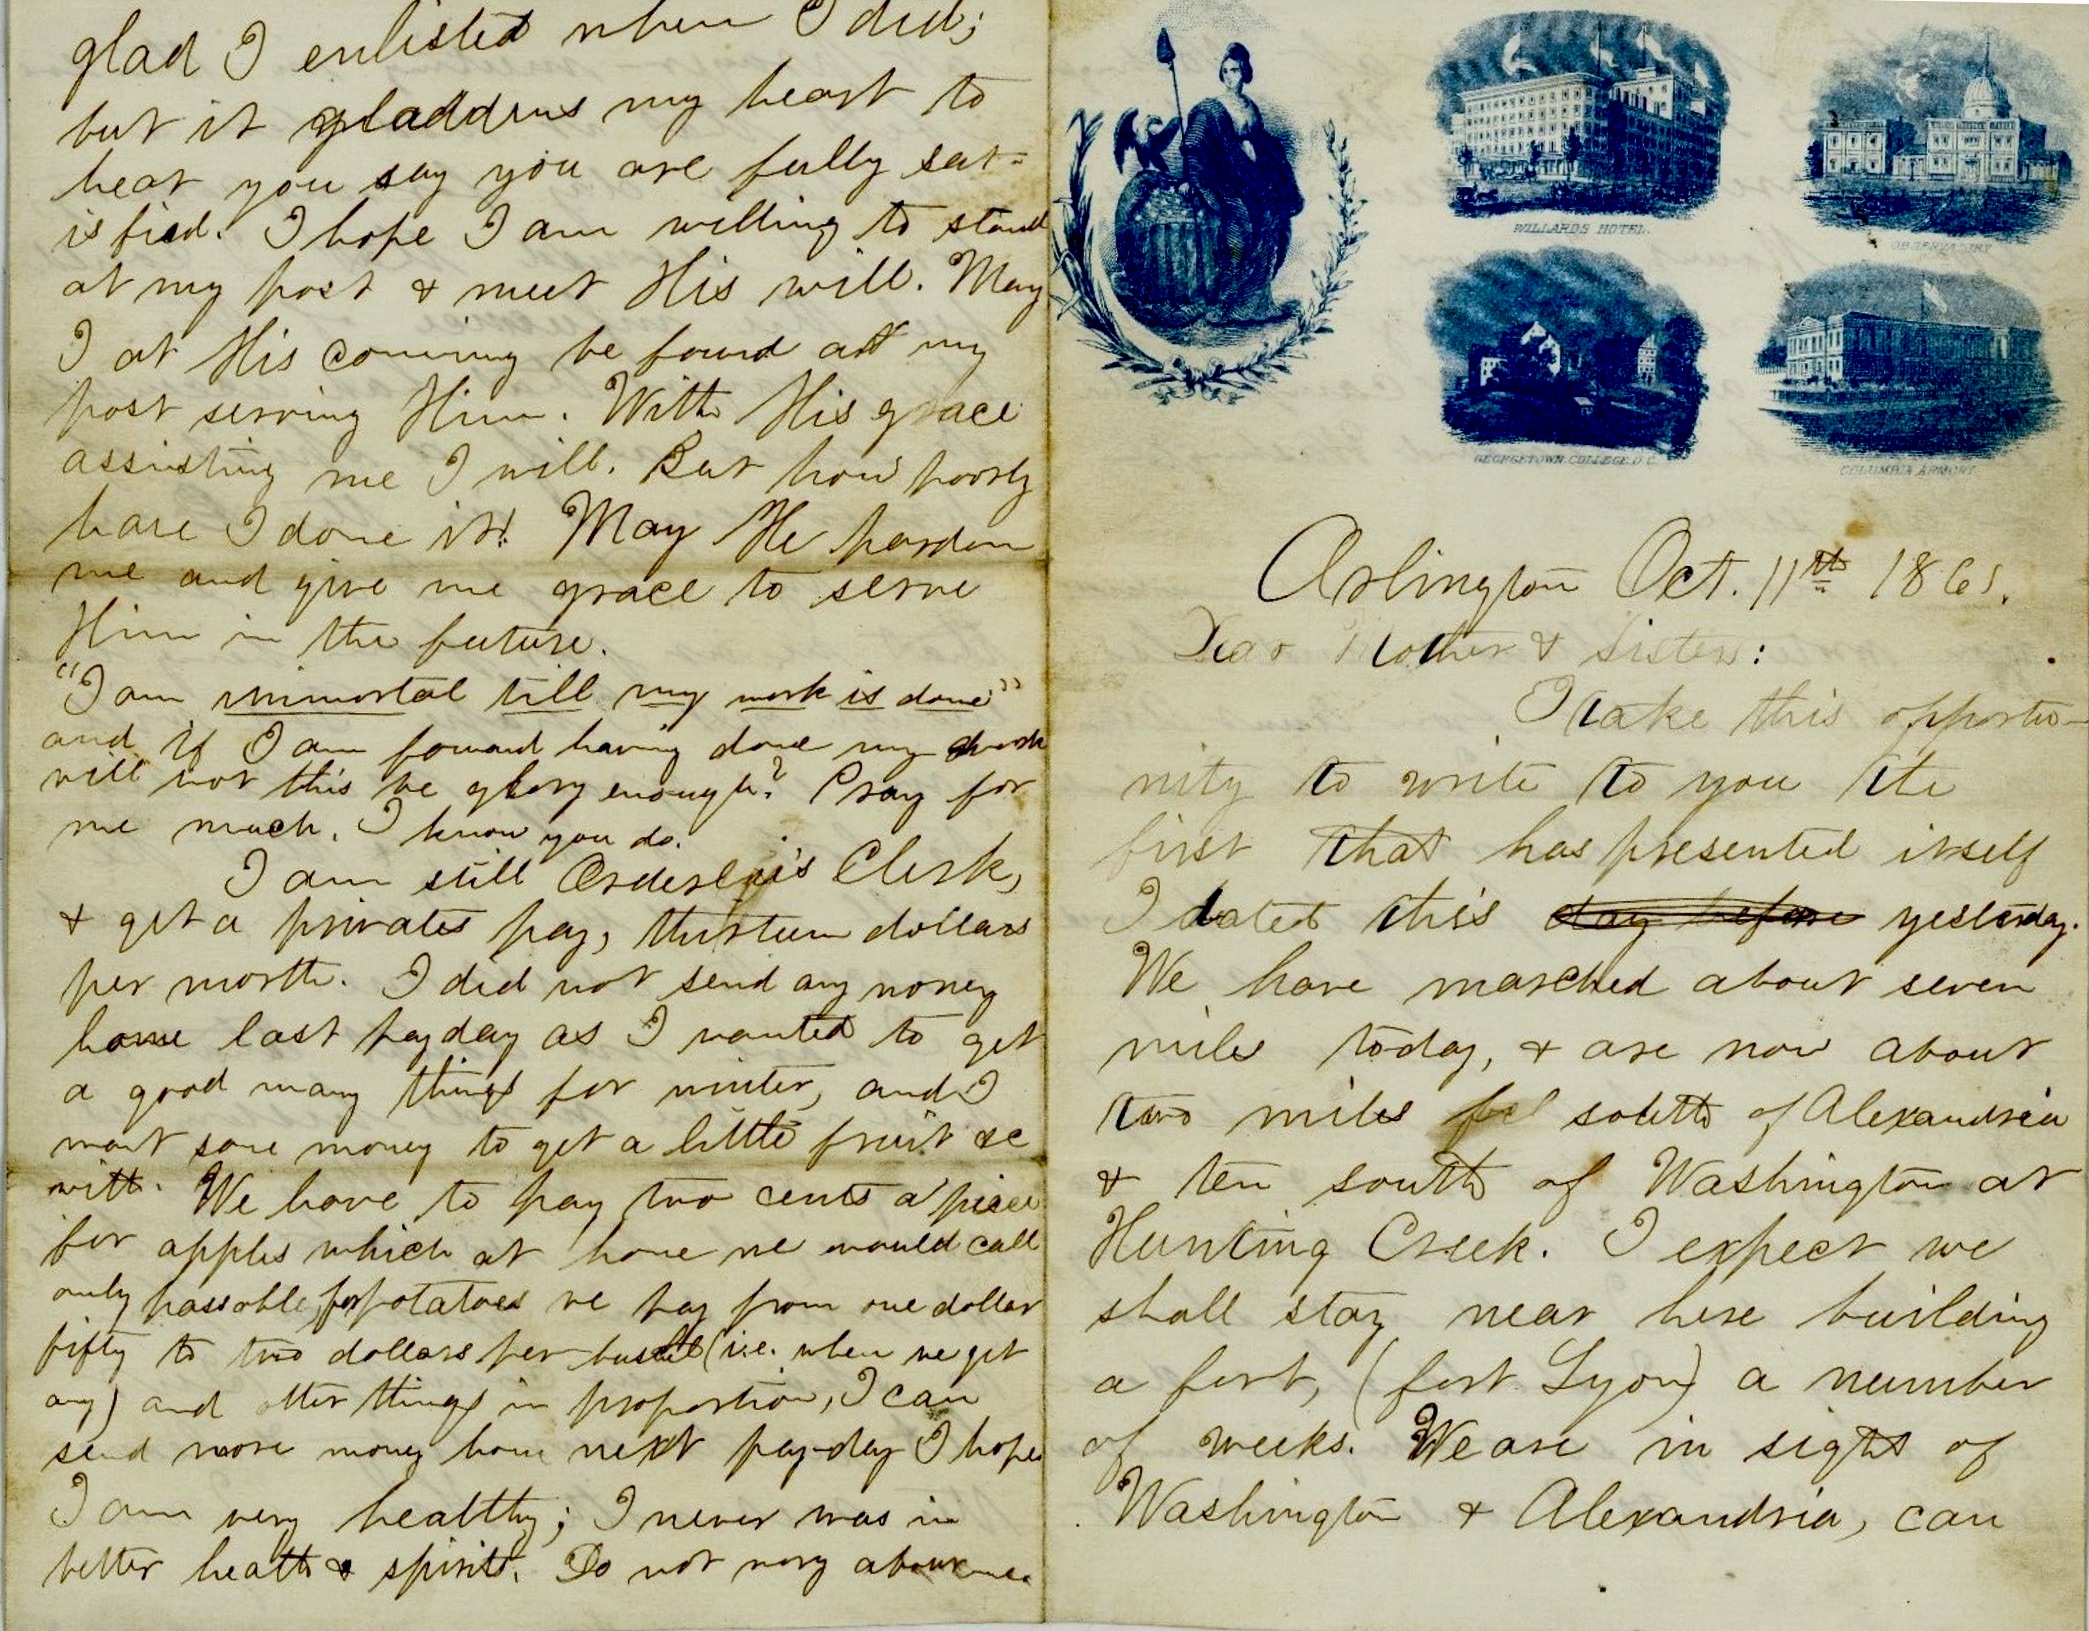 WILLARDS HOTEL.
OBSERVATORY
GEORGETOWN COLLEGE D.C.
COLUMBIA ARMORY
Arlington Oct. 11th 1861.
Dear Mother & Sister:
I take this opportu-
nity to write to you the
first that has presented itself
I dated this day before yesterday.
We have marched about seven
miles today, & are now about
two miles south of Alexandria
& ten south of Washington at
Hunting Creek. I expect we
shall stay near here building
a fort, (fort Lyon) a number
of weeks. We are in sight of
Washington & Alexandria, can
glad I enlisted when I did;
but it gladdens my heart to
hear you say you are fully sat-
isfied. I hope I am willing to stand
at my post & meet His will. May
I at His coming be found at my
post serving Him. With His grace
assisting me I will. But how poorly
have I done it! May He pardon
me and give me grace to serve
Him in the future.
"I am immortal till my work is done"
and if I am found having done my work
will not this be glory enough? Pray for
me much. I know you do.
I am still Orderly's Clerk,
& get a privates pay, thirteen dollars
per month. I did not send any money
home last payday as I wanted to get
a good many things for winter, and I
want some money to get a little fruit &c
with. We have to pay two cents a piece
for apples which at home we would call
only passable, for potatoes we pay from one dollar
fifty to two dollars per bushel (i.e. when we get
any) and other things in proportion, I can
send more money home next pay-day I hope
I am very healthy; I never was in
better health & spirits. Do not wory about me